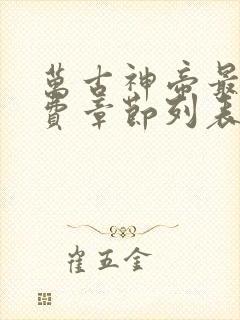 萬古神帝最
費章節列表
崔五金